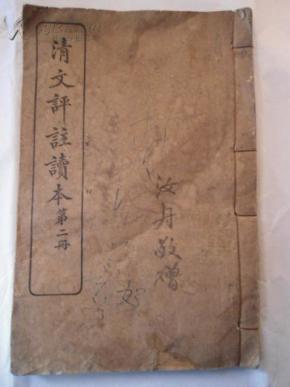 清文評註讀本第二冊
汝丹敬贈